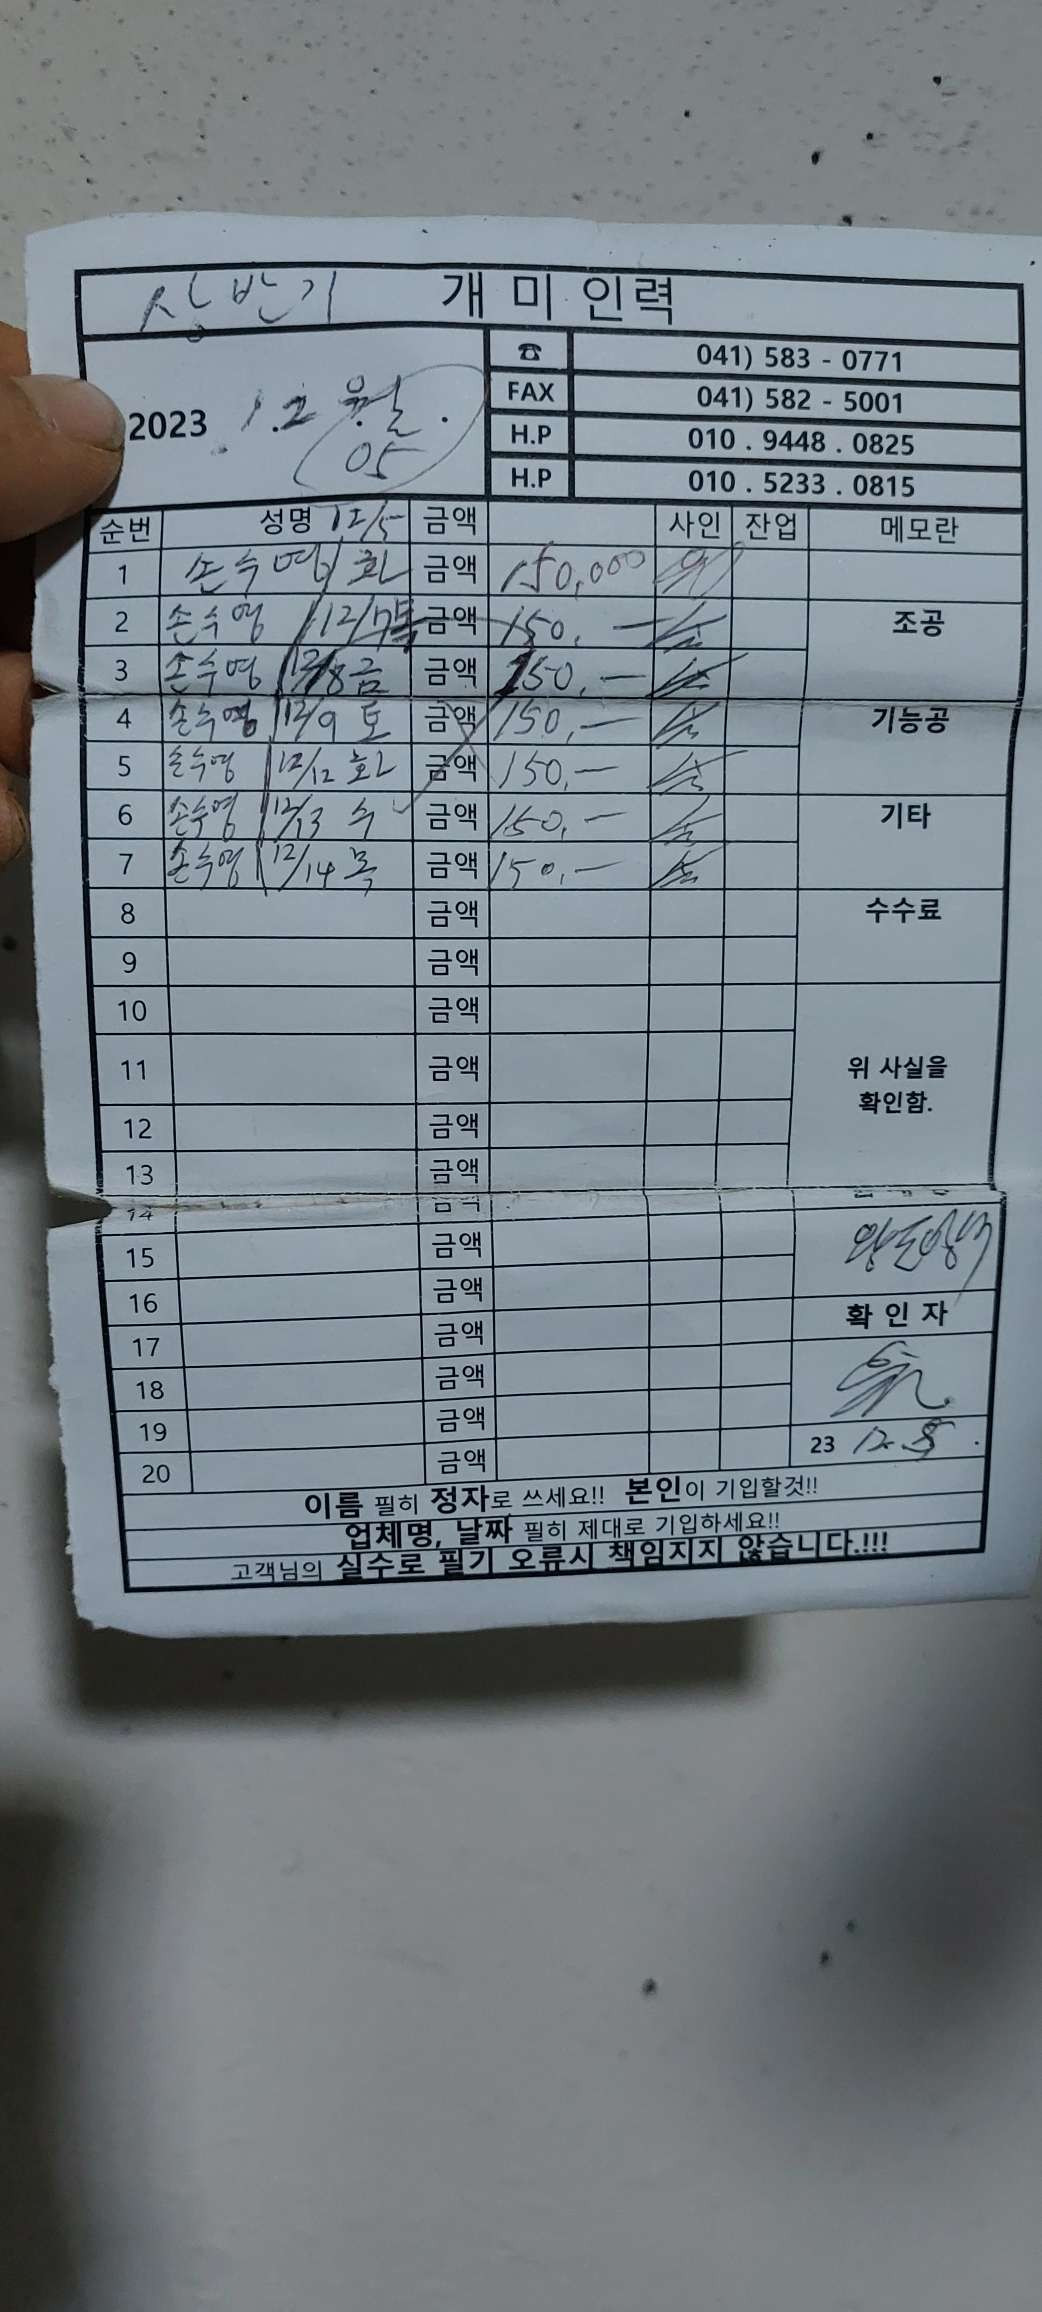 상반기 개미인력
☎ 041) 583 - 0771
FAX 041) 582 - 5001
2023. 12월 05. H.P 010 . 9448 . 0825
H.P 010 . 5233 . 0815
순번 성명 12/5 금액 사인 잔업 메모란
1 손수영 화 금액 150,000
2 손수영 12/7 목 금액 150,— 손 조공
3 손수영 12/8 금 금액 150,— 손
4 손수영 12/9 토 금액 150,— 손 기능공
5 손수영 12/12 화 금액 150,— 손
6 손수영 12/13 수 금액 150,— 손 기타
7 손수영 12/14 목 금액 150,— 손
8 금액 수수료
9 금액
10 금액
11 금액 위 사실을
확인함.
12 금액
13 금액
14 금액
15 금액
16 금액 확 인 자
17 금액
18 금액
19 금액 23 12.
20 금액
이름 필히 정자로 쓰세요!! 본인이 기입할것!!
업체명, 날짜 필히 제대로 기입하세요!!
고객님의 실수로 필기 오류시 책임지지 않습니다.!!!